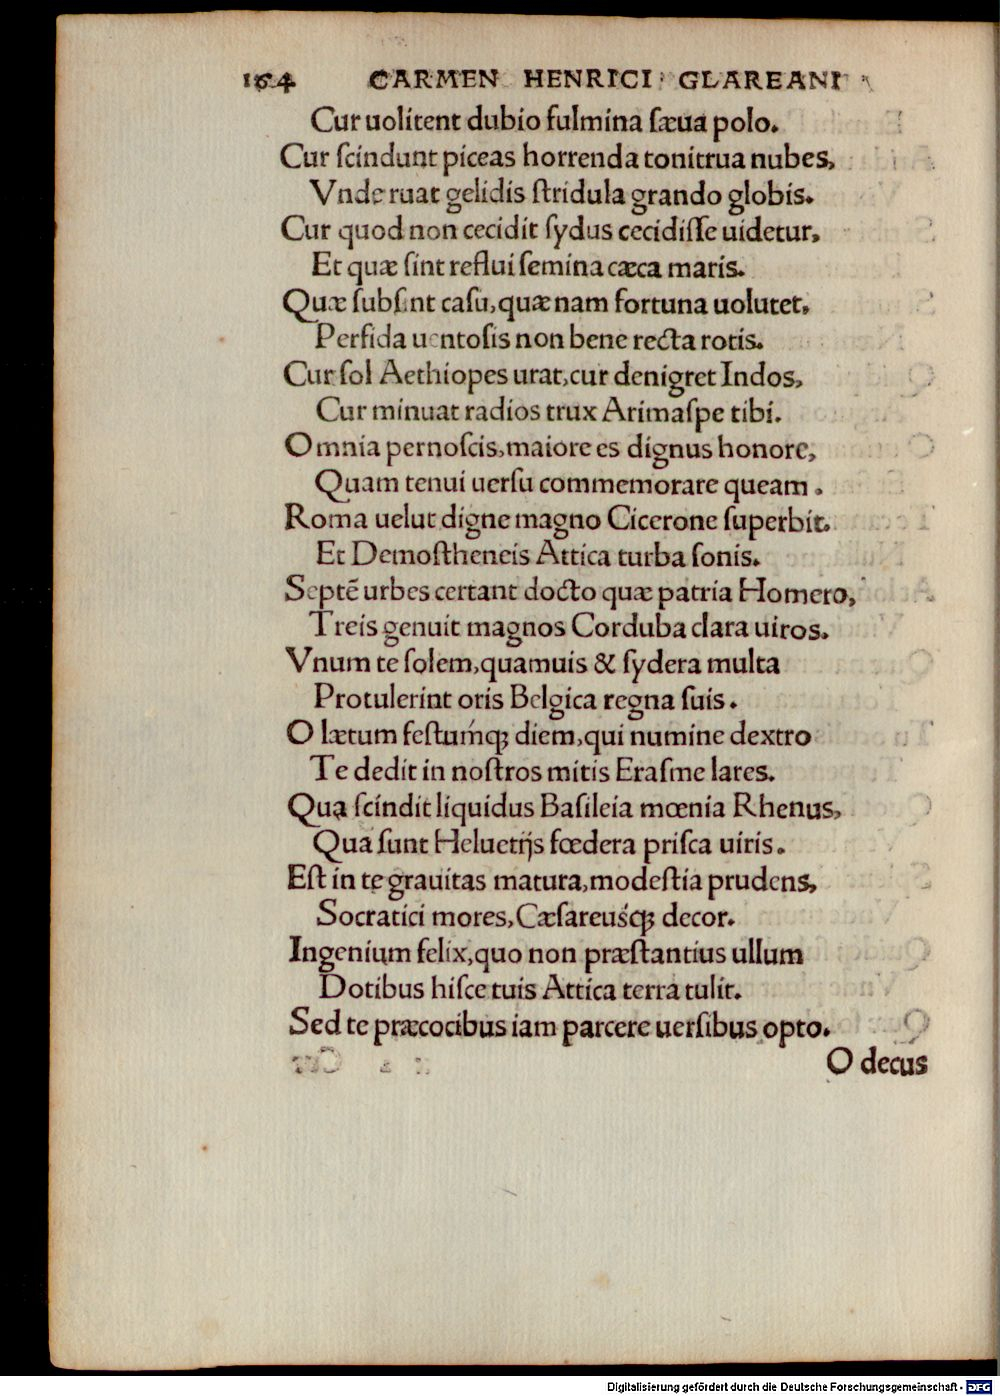 164 CARMEN HENRICI GLAREANI
Cur uolitent dubio fulmina ſæua polo.
Cur ſcindunt piceas horrenda tonitrua nubes,
Vnde ruat gelidis ſtridula grando globis.
Cur quod non cecidit ſydus cecidiſſe uidetur,
Et quæ ſint reflui ſemina cæca maris.
Quæ ſubſint caſu, quæ nam fortuna uolutet,
Perfida uentoſis non bene recta rotis.
Cur ſol Aethiopes urat, cur denigret Indos,
Cur minuat radios trux Arimaſpe tibi.
Omnia pernoſcis, maiore es dignus honore,
Quam tenui uerſu commemorare queam.
Roma uelut digne magno Cicerone ſuperbit.
Et Demoſtheneis Attica turba ſonis.
Septē urbes certant docto quæ patria Homero,
Treis genuit magnos Corduba clara uiros.
Vnum te ſolem, quamuis & ſydera multa
Protulerint oris Belgica regna ſuis.
O lætum feſtumq́ꝫ diem, qui numine dextro
Te dedit in noſtros mitis Eraſme lares.
Qua ſcindit liquidus Baſileia mœnia Rhenus,
Qua ſunt Heluetijs fœdera priſca uiris.
Eſt in te grauitas matura, modeſtia prudens,
Socratici mores, Cæſareusq́ꝫ decor.
Ingenium felix, quo non præſtantius ullum
Dotibus hiſce tuis Attica terra tulit.
Sed te præcocibus iam parcere uerſibus opto.
O decus
Digitalisierung gefördert durch die Deutsche Forschungsgemeinschaft - DFG